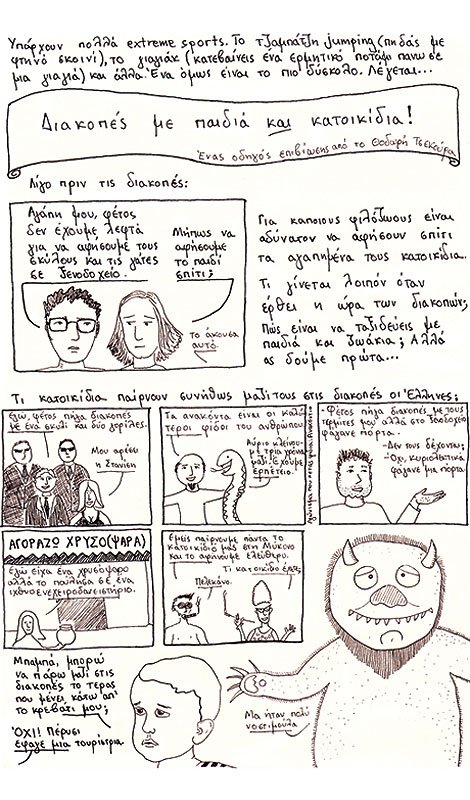 Υπάρχουν πολλά extreme sports. Το τζαμπάτζη jumping (πηδάς με
φτηνό σκοινί), το γιαγιάκ (κατεβαίνεις ένα ορμητικό ποτάμι πάνω σε
μια γιαγιά) και άλλα. Ένα όμως είναι το πιο δύσκολο. Λέγεται...
Διακοπές με παιδιά και κατοικίδια!
Ένας οδηγός επιβίωσης από το Θοδωρή Τσεκούρα
Λίγο πριν τις διακοπές:
Αγάπη μου, φέτος
δεν έχουμε λεφτά
για να αφήσουμε τους
σκύλους και τις γάτες
σε ξενοδοχείο.
Μήπως να
αφήσουμε
το παιδί
σπίτι;
Το άκουσα
αυτό.
Για κάποιους φιλόζωους είναι
αδύνατον να αφήσουν σπίτι
τα αγαπημένα τους κατοικίδια.
Τι γίνεται λοιπόν όταν
έρθει η ώρα των διακοπών;
Πώς είναι να ταξιδεύεις με
παιδιά και ζωάκια; Αλλά
ας δούμε πρώτα...
Τι κατοικίδια παίρνουν συνήθως μαζί τους στις διακοπές οι Έλληνες;
Εγώ, φέτος πήγα διακοπές
με ένα σκυλί και δύο γορίλες.
Μου αρέσει
η Στανίση
Τα ανακόντα είναι οι καλύ
τεροι φίδοι του ανθρώπου.
Αύριο κλείνου-
με τρία χρόνια
μαζί. Έχουμε
ερπέτειο.
-Φέτος πήγα διακοπές με τους
τερμίτες μου αλλά στο ξενοδοχείο
φάγανε πόρτα.
-Δεν τους δέχονταν;
-Όχι, κυριολεκτικά
φάγανε μία πόρτα.
ΑΓΟΡΑΖΩ ΧΡΥΣΟ(ΨΑΡΑ)
Εγώ είχα ένα χρυσόψαρο
αλλά το πούλησα σε ένα
ιχθυοενεχειροδανειστήριο.
Εμείς παίρνουμε πάντα το
κατοικίδιό μας στη Μύκονο
και το αφήνουμε ελεύθερο.
Τι κατοικίδιο έχετε;
Πελεκάνο.
Μπαμπά, μπορώ
να πάρω μαζί στις
διακοπές το τέρας
που μένει κάτω απ'
το κρεβάτι μου;
ΌΧΙ! Πέρυσι
έφαγε μια τουρίστρια
Μα ήταν πολύ
νοστιμούλα